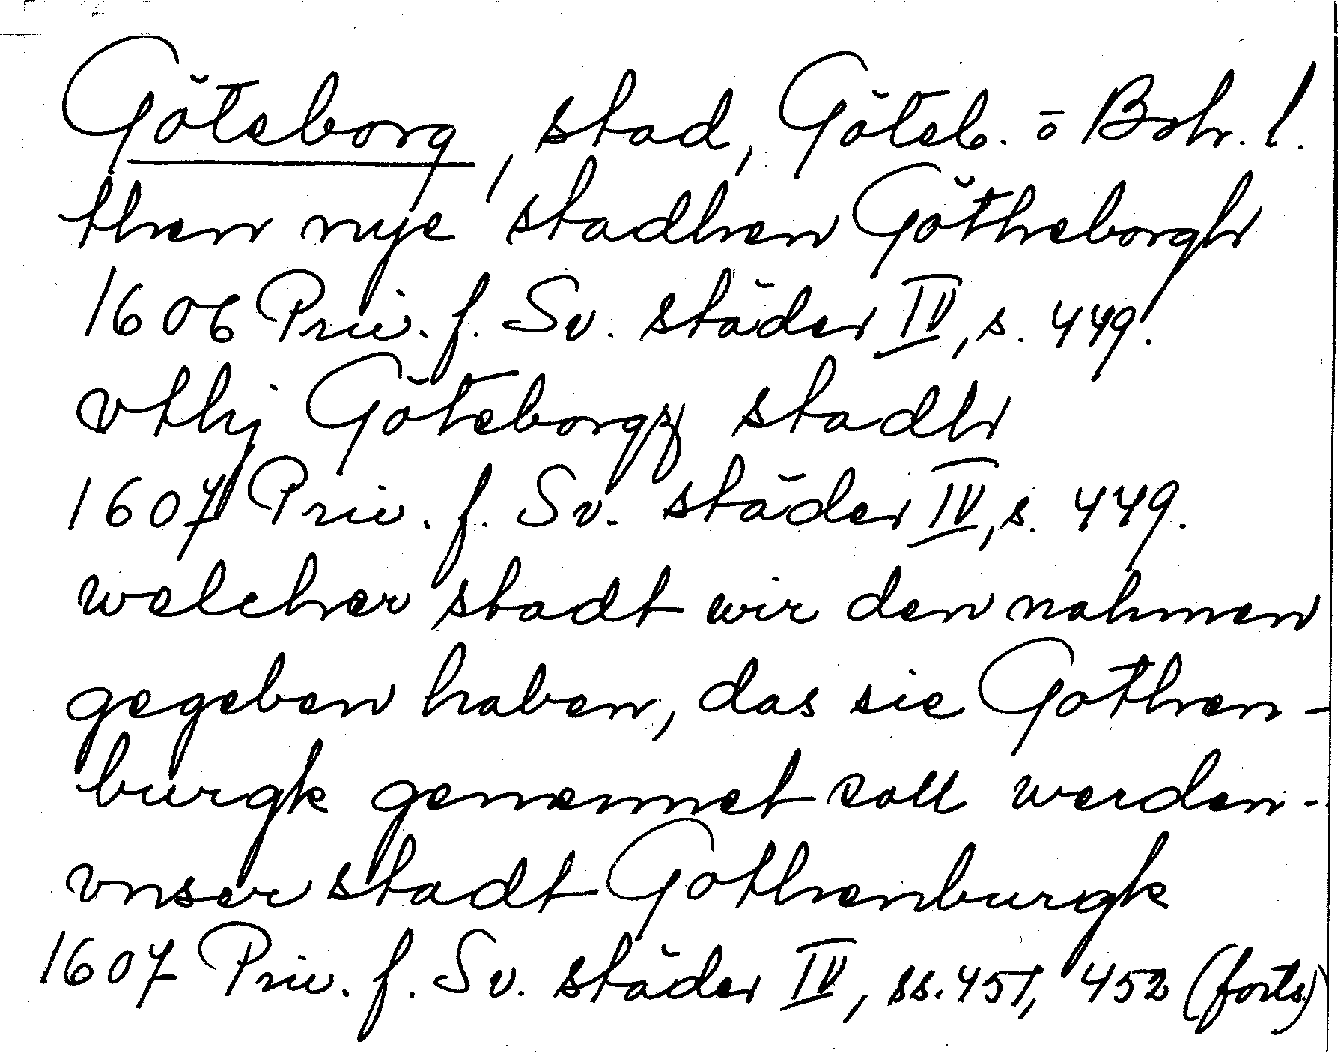 Göteborg, stad, Göteb. o Boh. l.
then nye stadhen Götheborgh
1606 Priv. f. Sv. städer IV, s. 449.
vthj Göteborgz stadh
1607 Priv. f. Sv. städer IV, s. 449.
welcher stadt wir den nahmen
gegeben haben, das sie Gothen-
burgk genennet soll werden -
vnser stadt Gothenburgk
1607 Priv. f. Sv. städer IV, ss. 451, 452 (forts)